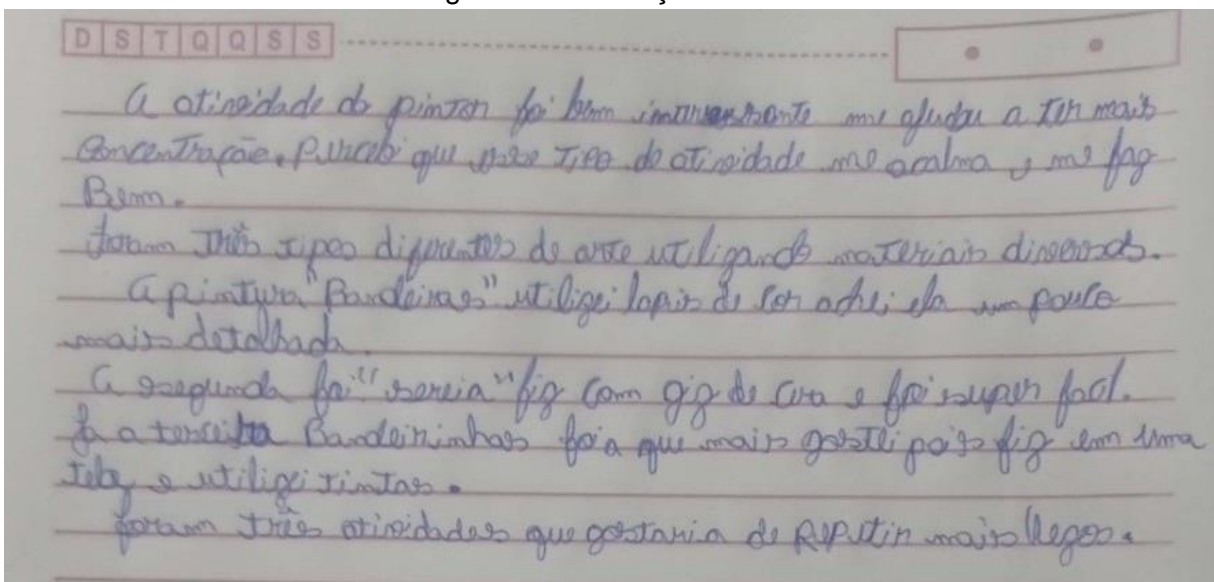 D S T Q Q S S
A atividade do pintor foi bem interessante me ajudou a ter mais
concentração. Percebi que esse tipo de atividade me acalma e me faz
Bem.
foram três tipos diferentes de arte utilizando materiais diversos.
A pintura "Bandeiras" utilizei lapis de cor achei ela um pouco
mais detalhada.
A segunda foi "sereia" fiz com giz de cera e foi super facil.
Ja a terceira Bandeirinhas foi a que mais gostei pois fiz em uma
tela e utilizei tintas.
foram três atividades que gostaria de Repetir mais